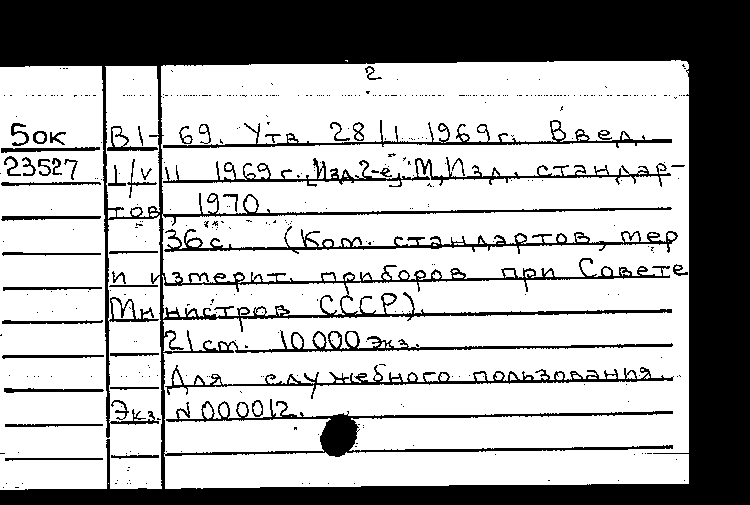 2
5ок В1- 69. Утв. 28/I 1969г. Введ.
23527 1/VII 1969г., [Изд. 2-е]. М., Изд. стандар-
тов, 1970.
36с. (Ком. стандартов, мер
и измерит. приборов при Совете
Министров СССР).
21 cm. 10000 экз.
Для служебного пользования.
Экз. N000012.